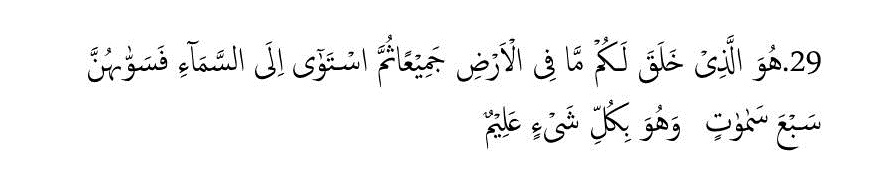 29.هُوَ الَّذِىْ خَلَقَ لَكُمْ مَّا فِى الْاَرْضِ جَمِيْعًاثُمَّ اسْتَوٰٓى اِلَى السَّمَآءِ فَسَوّٰٮهُنَّ
سَبْعَ سَمٰوٰتٍ وَهُوَ بِكُلِّ شَىْءٍ عَلِيْمٌ